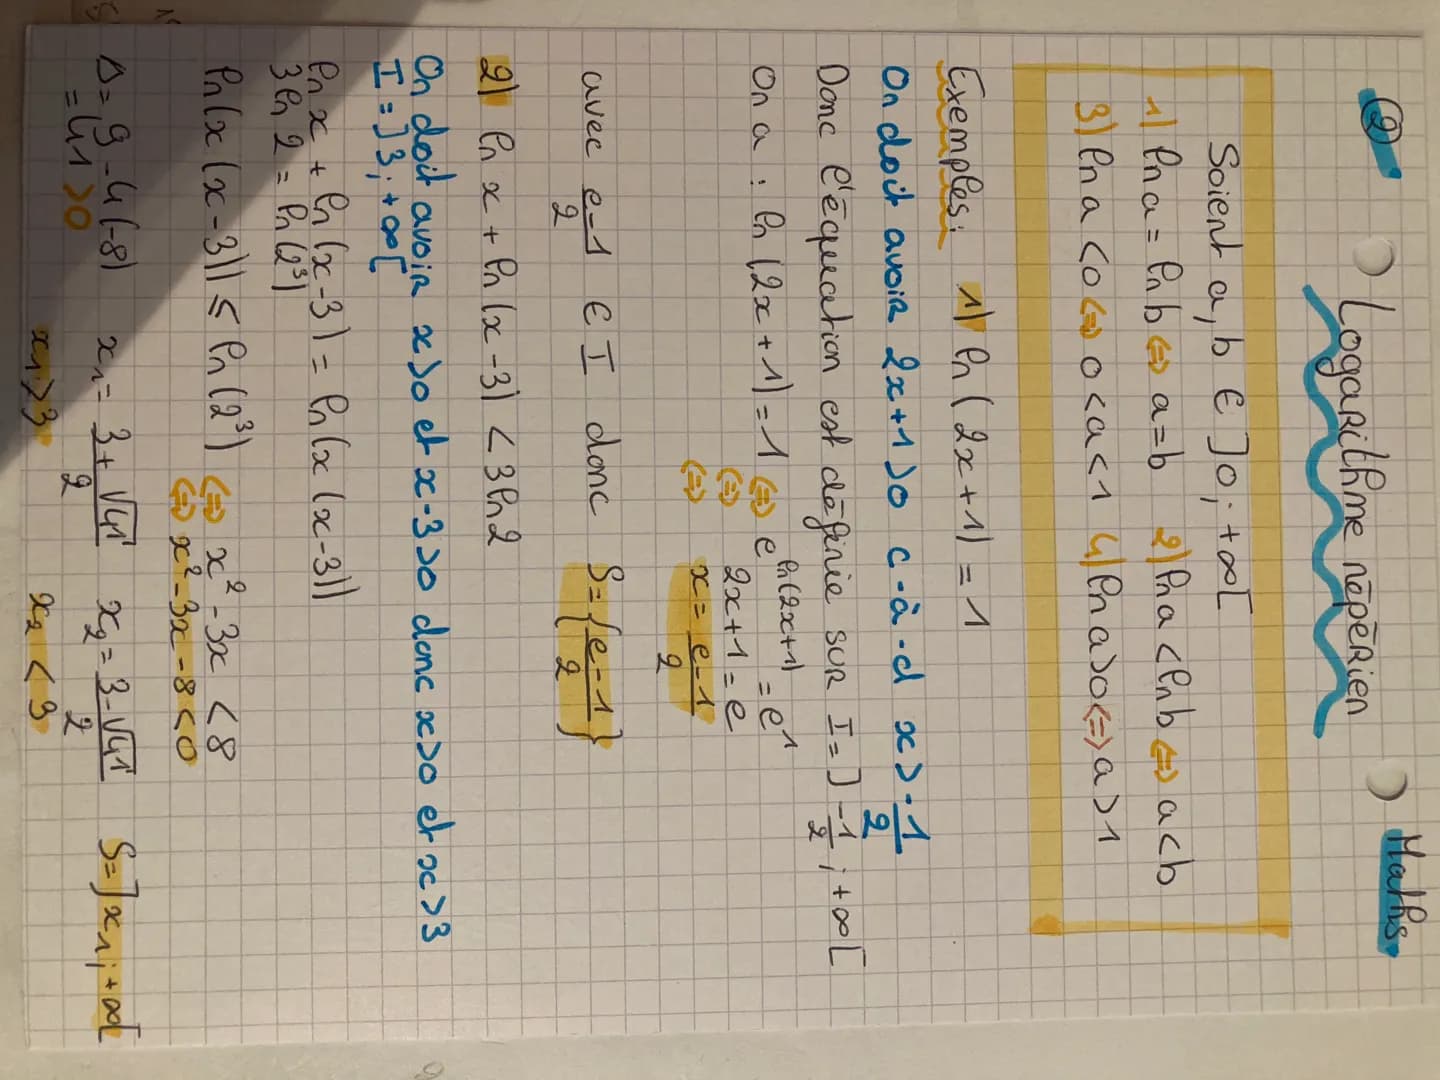 ② Maths
Logarithme népérien
Soient a, b ∈ ]0; +∞[
1) ln a = ln b ⇔ a = b 2) ln a < ln b ⇔ a < b
3) ln a < 0 ⇔ 0 < a < 1 4) ln a > 0 ⇔ a > 1
Exemples: 1) ln(2x+1) = 1
On doit avoir 2x+1>0 c-à-d x > -1/2
Donc l'équation est définie sur I = ]-1/2; +∞[
On a : ln(2x+1) = 1 ⇔ e^ln(2x+1) = e^1
⇔ 2x+1 = e
⇔ x = e-1/2
avec e-1/2 ∈ I donc S = {e-1/2}
2) ln x + ln(x-3) < 3ln2
On doit avoir x>0 et x-3>0 donc x>0 et x>3
I = ]3; +∞[
ln x + ln(x-3) = ln(x(x-3))
3 ln 2 = ln(2³)
ln(x(x-3)) ≤ ln(2³) ⇔ x² - 3x < 8
⇔ x² - 3x - 8 < 0
Δ = 9 - 4(-8) x₁ = 3+√41/2 x₂ = 3-√41/2 S = ]x₁; +∞[
= 41 > 0
x₁ > 3 x₂ < 3